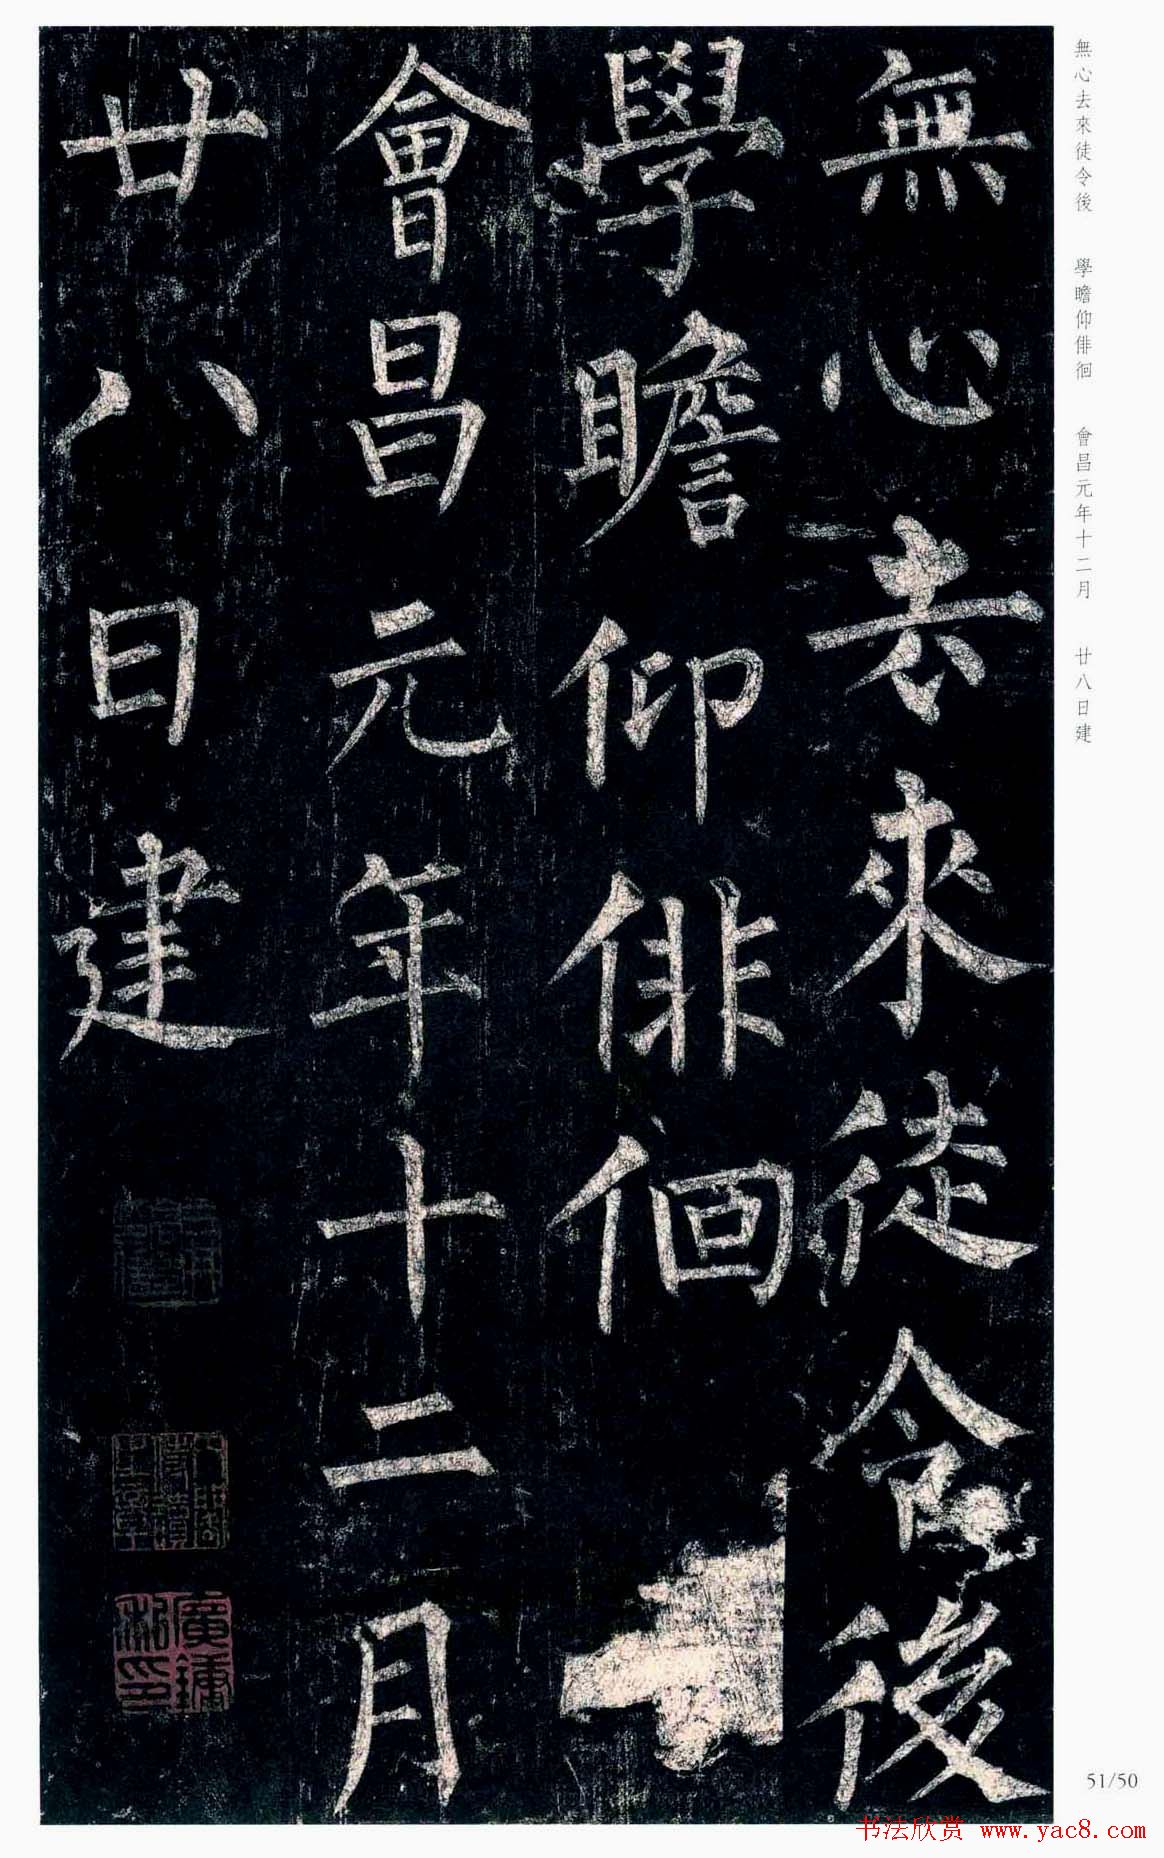 無心去來徒令後
學瞻仰俳徊
會昌元年十二月
廿八日建
無心去來徒令後 學瞻仰俳徊 會昌元年十二月 廿八日建
51/50
书法欣赏 www.yac8.com